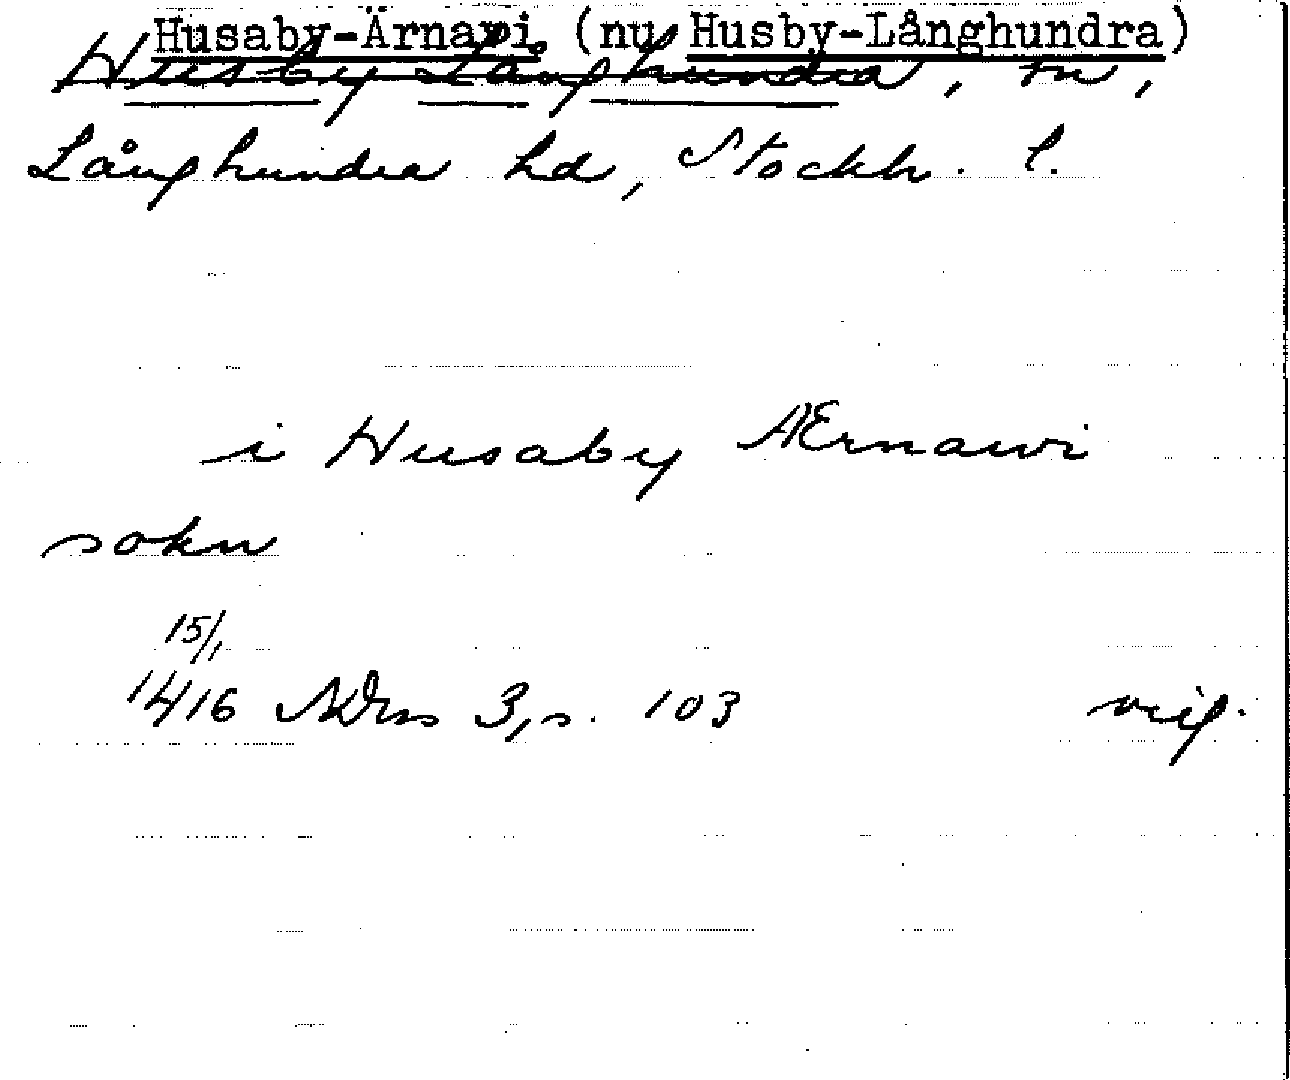 Husaby-Ärnavi (nu Husby-Långhundra)
Husby Långhundra, sn,
Långhundra hd, Stockh. l.
i Husaby Ærnawi
sokn
15/1
1416 3, s. 103 orig.